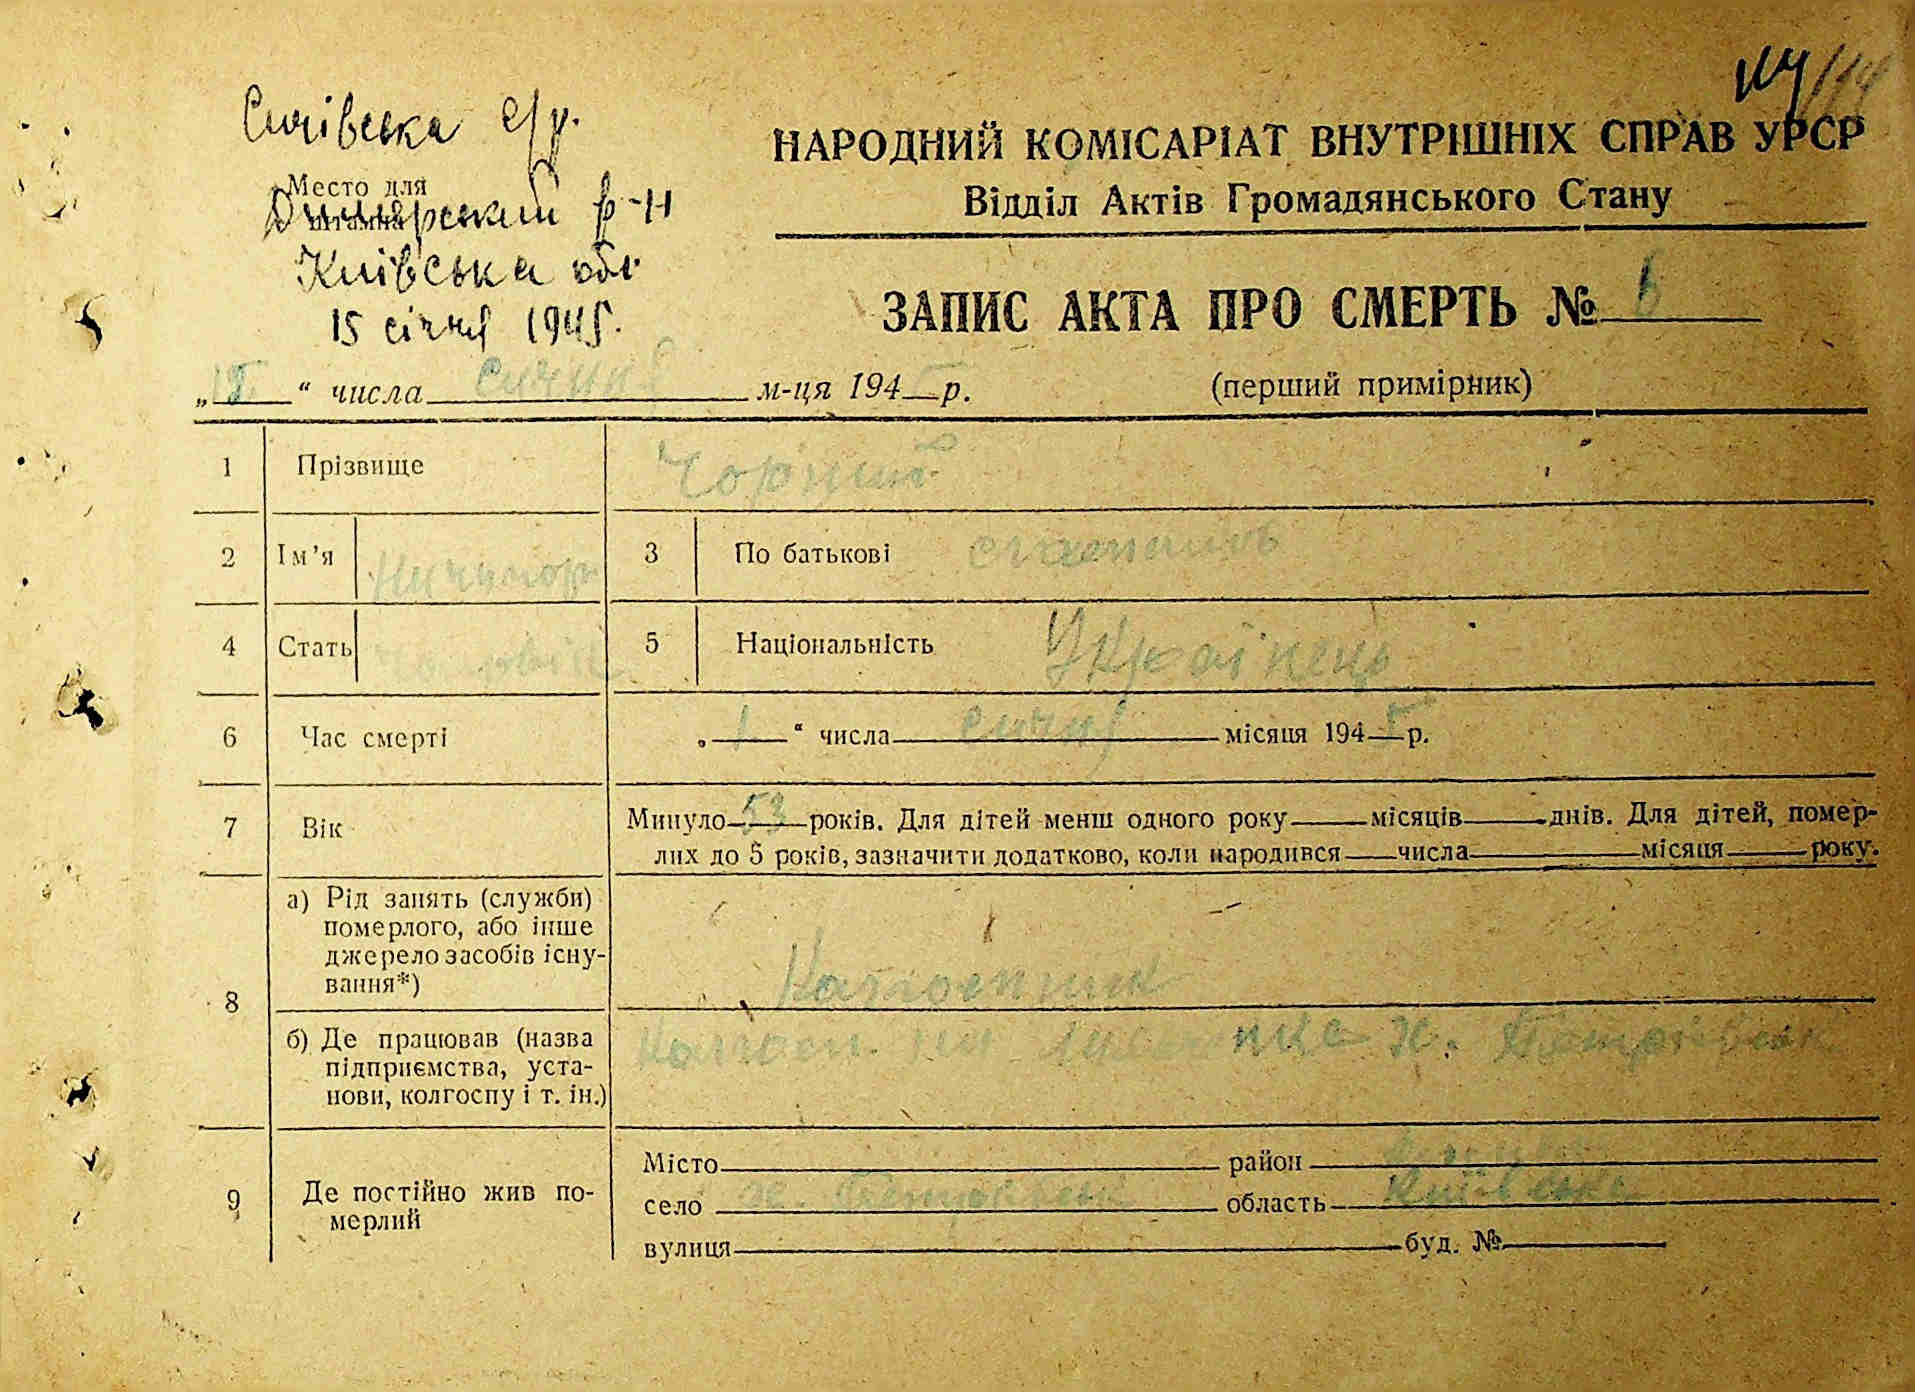 с/р.
Место для
штампа
р-н
Київська обл.
15 січня 1945.
НАРОДНИЙ КОМІСАРІАТ ВНУТРІШНІХ СПРАВ УРСР
Відділ Актів Громадянського Стану
ЗАПИС АКТА ПРО СМЕРТЬ № 6
„15“ числа сичня м-ця 1945 р.
(перший примірник)
1 Прізвище Чорний
2 Ім’я Ничипор 3 По батькові
4 Стать Чоловік 5 Національність Українець
6 Час смерті „1“ числа сичня місяця 1945 р.
7 Вік Минуло 53 років. Для дітей менш одного року місяців днів. Для дітей, помер-
лих до 5 років, зазначити додатково, коли народився числа місяця року.
8
а) Рід занять (служби)
померлого, або інше
джерело засобів існу-
вання*)
Колгоспник
б) Де працював (назва
підприємства, уста-
нови, колгоспу і т. ін.)
Колгосп х.
9 Де постійно жив по-
мерлий
Місто район
село х. область Київська
вулиця буд. №